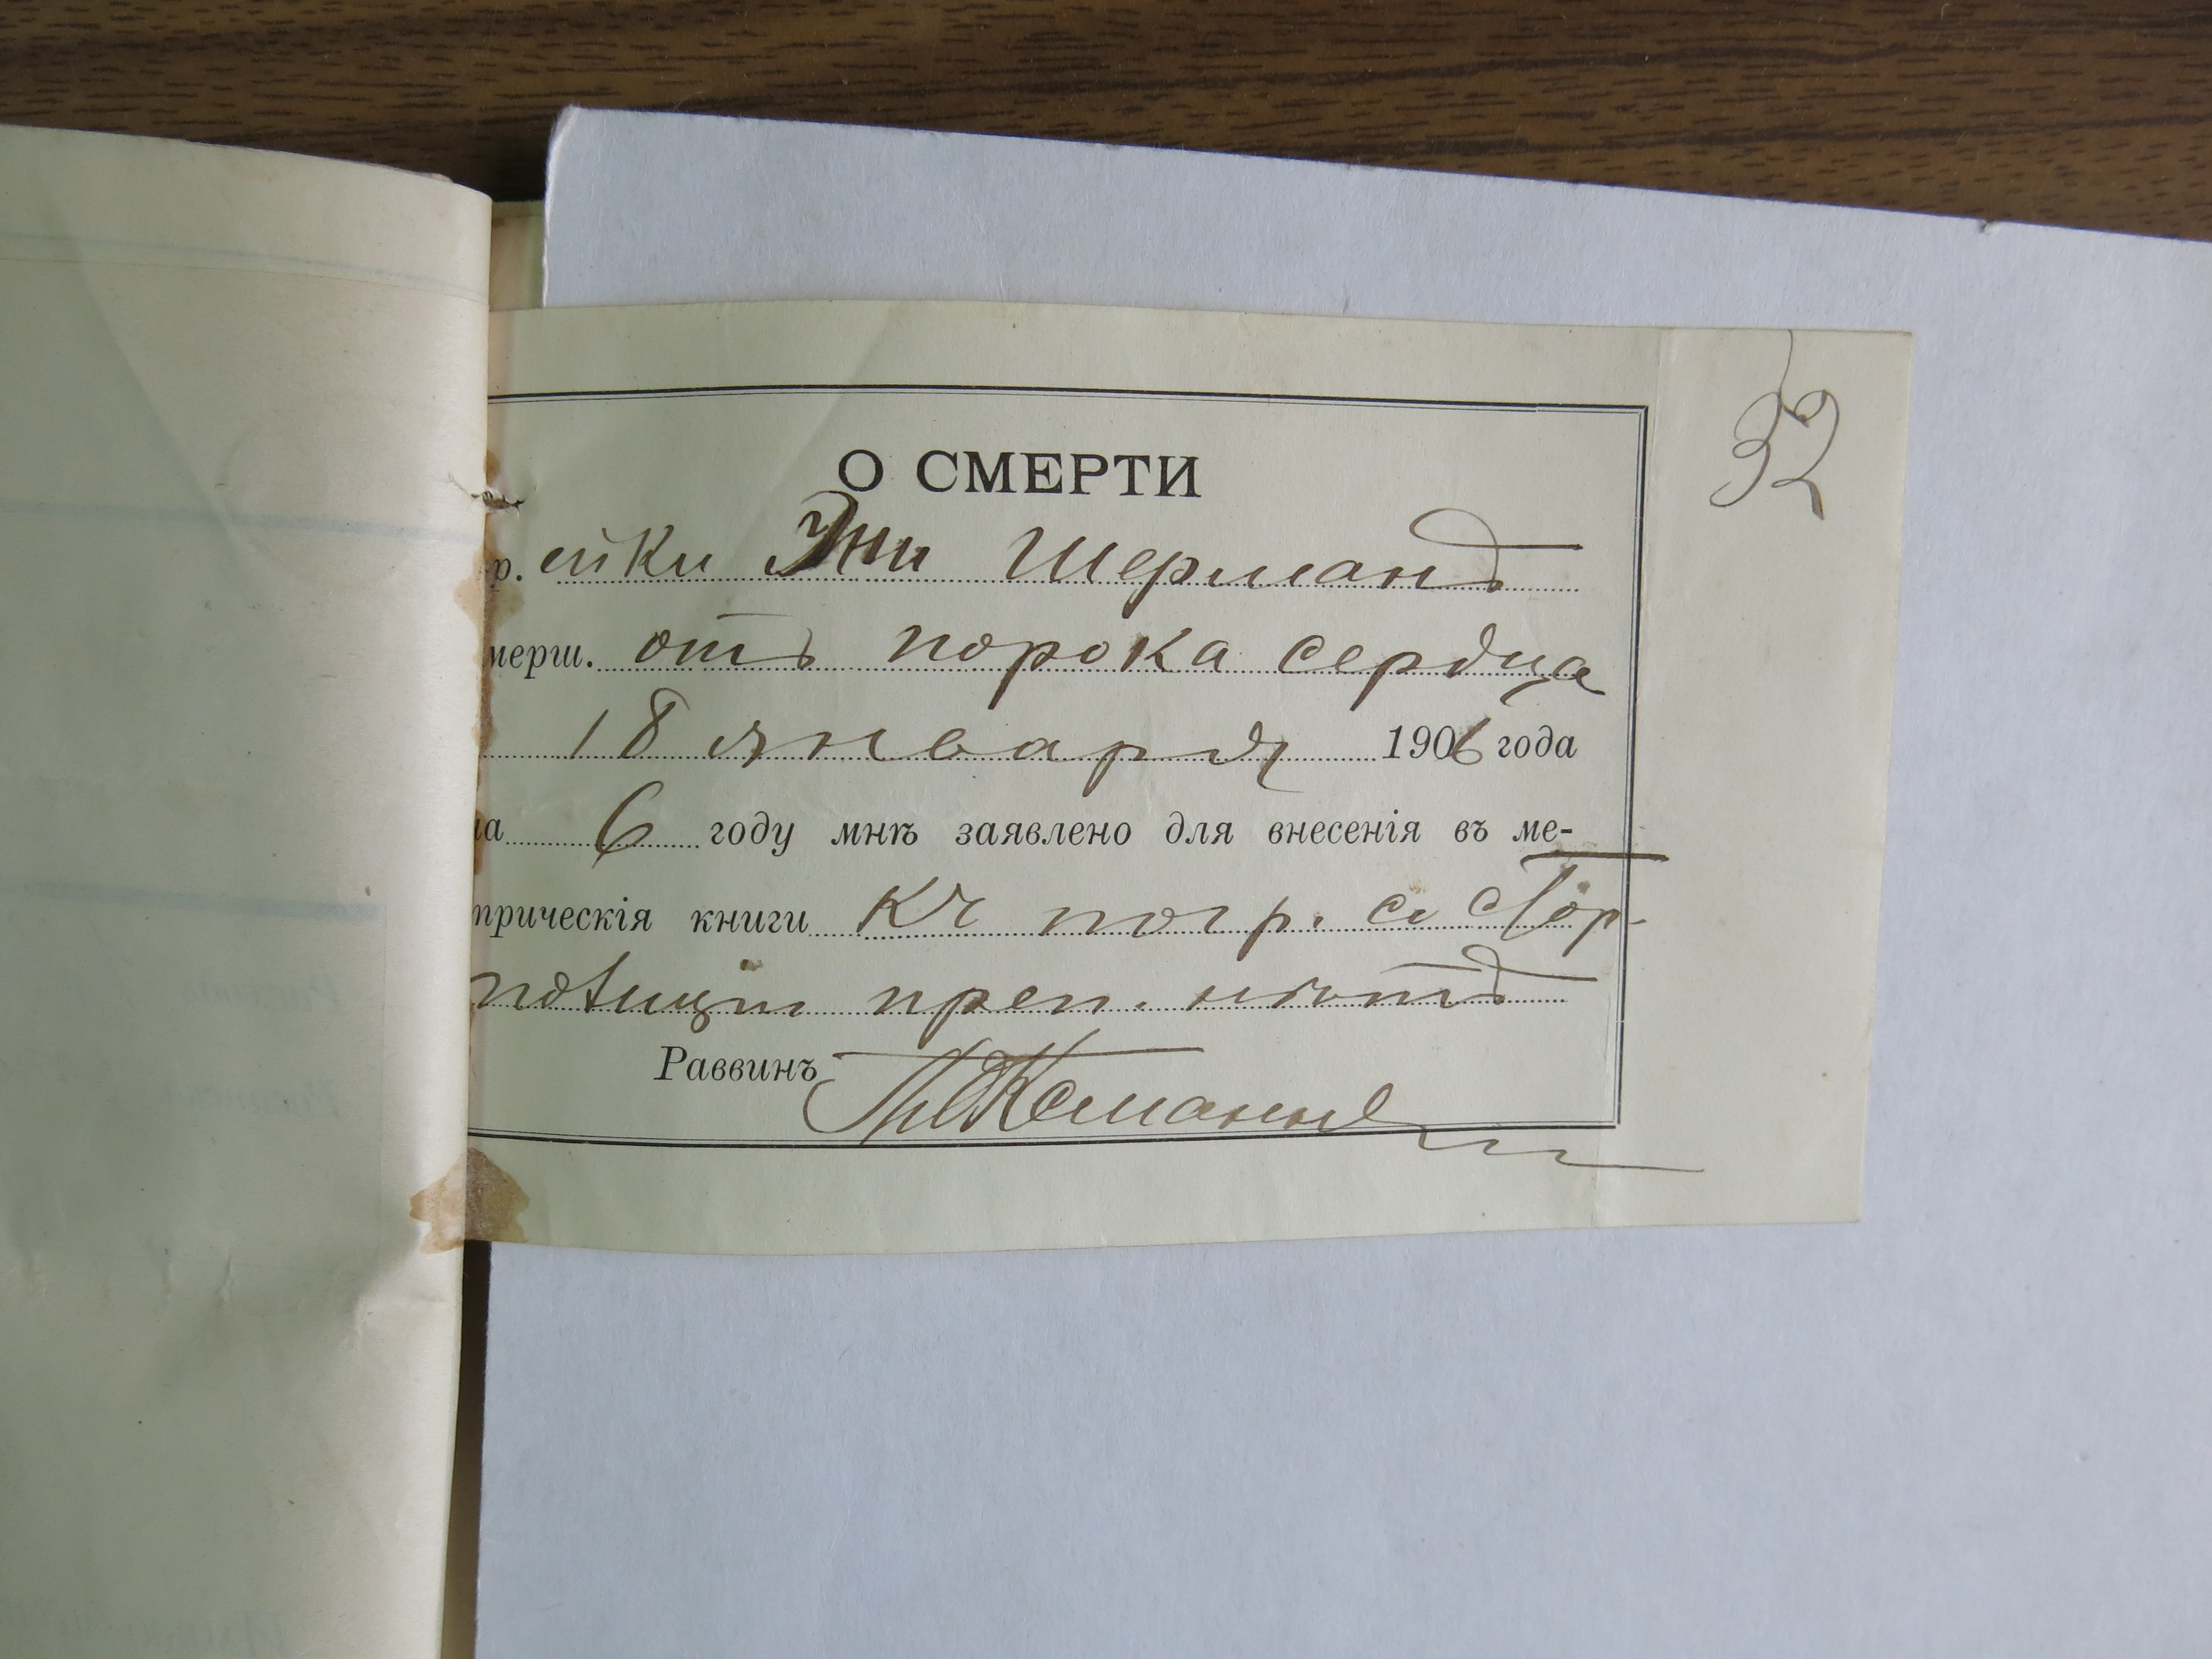 32
О СМЕРТИ
р. ейки Эни Шерманъ
мерш. отъ порока сердца
18 января 1906 года
на 6 году мнѣ заявлено для внесенія въ ме-
трическія книги Къ погр. со стор-
полиціи преп. нѣтъ
Раввинъ